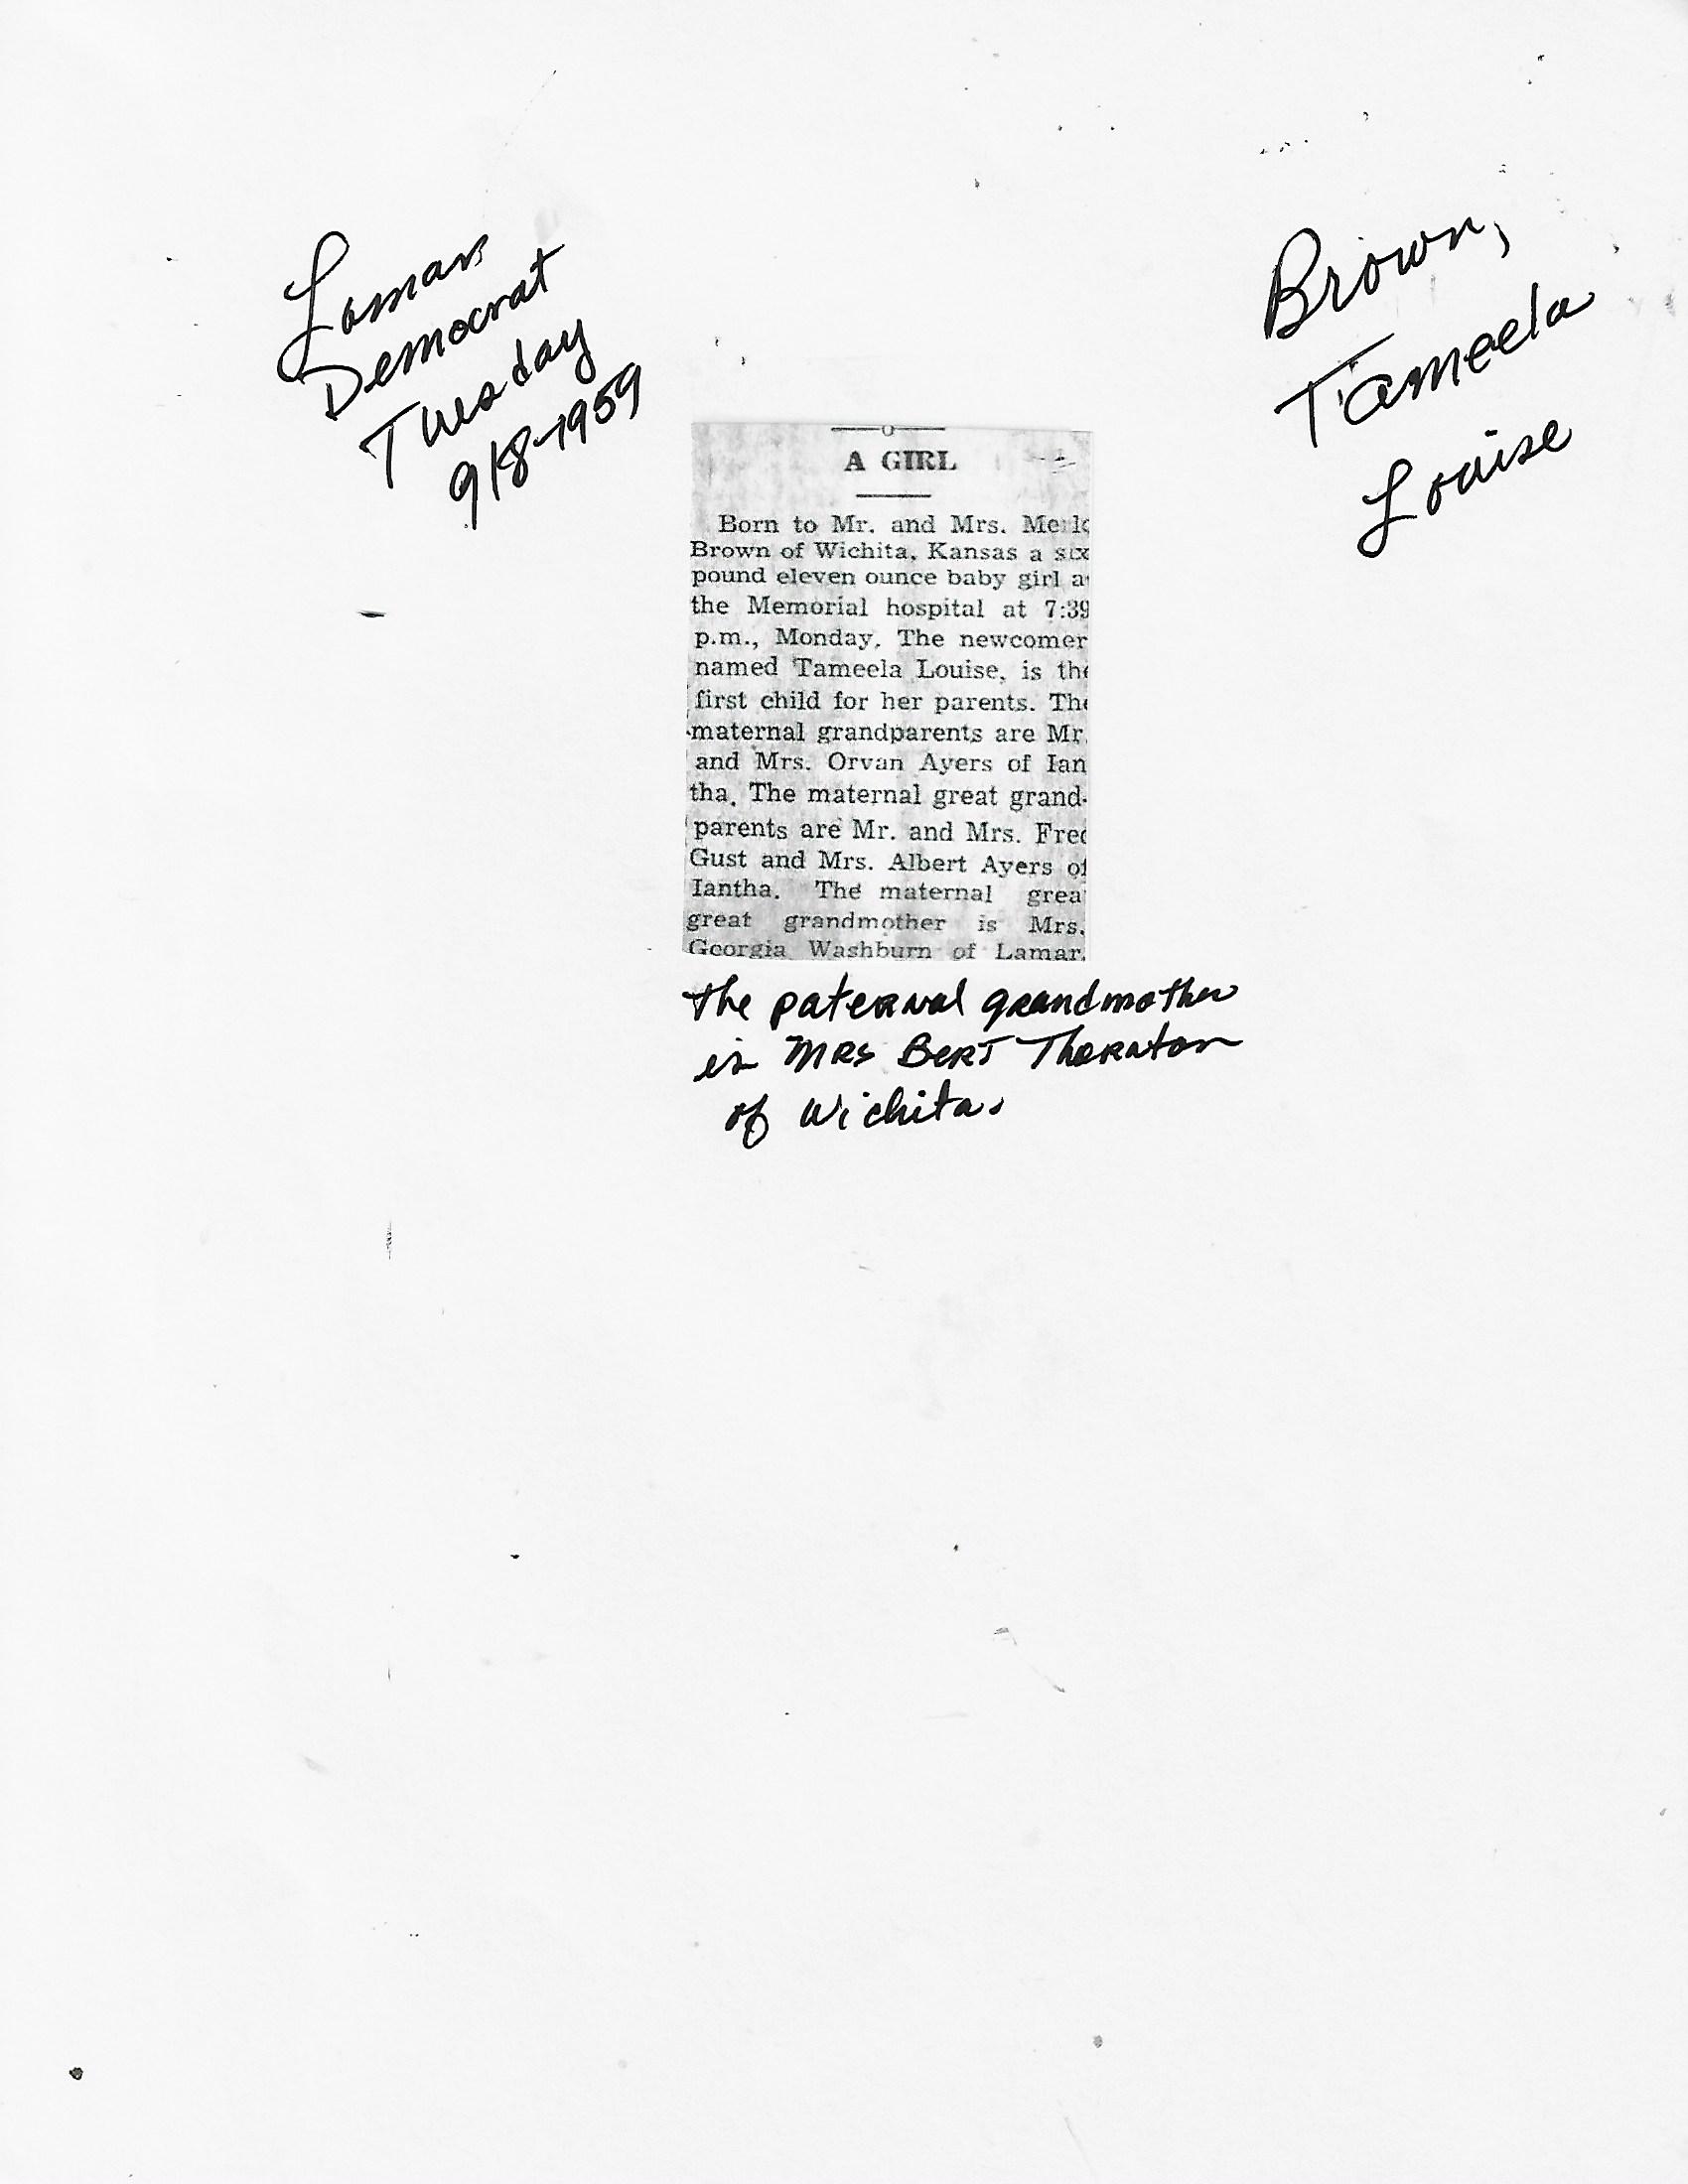 Lamar
Democrat
Tuesday
9/8-1959
Brown,
Tameela
Louise
A GIRL
Born to Mr. and Mrs.
Brown of Wichita, Kansas a six
pound eleven ounce baby girl a
the Memorial hospital at 7:39
p.m., Monday. The newcomer
named Tameela Louise, is the
first child for her parents. The
maternal grandparents are Mr.
and Mrs. Orvan Ayers of Ian
tha. The maternal great grand-
parents are Mr. and Mrs. Fred
Gust and Mrs. Albert Ayers of
Iantha. The maternal grea
great grandmother is Mrs.
Georgia Washburn of Lamar.
The paternal grandmother
is MRS BERT Thornton
of Wichita.